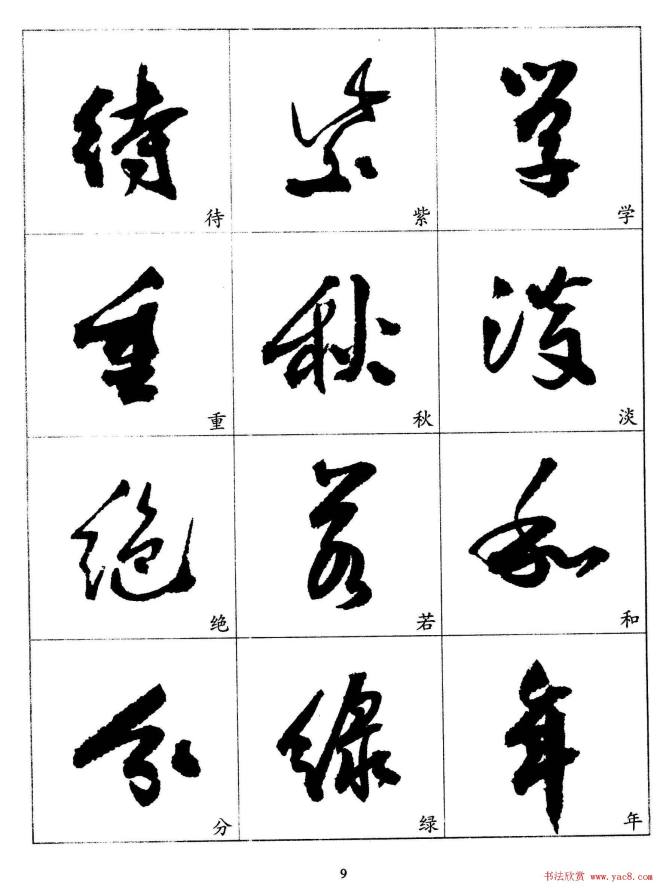 待 紫 学
待 紫 学
重 秋 淡
重 秋 淡
绝 若 和
绝 若 和
分 绿 年
分 绿 年
9
书法欣赏 www.yac8.com